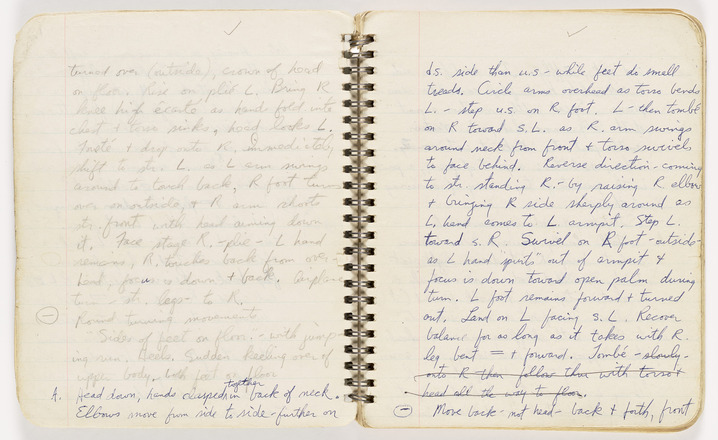 turned over (outside), crown of head
on floor. Rise on plié L. Bring R
knee high écarté as hand fold into
chest & torso sinks, head looks L.
& drop onto R, immediately
shift to str. L. as L arm swings
around to touch back, R foot turns
over on outside, & R arm shoots
str. front with head aiming down
it. Face stage R, - plié - L hand
remains, R. touches back from over-
head, focus is down & back. Airplane
turn - str. legs - to R.
Round turning movements
Sides of feet on floor. - with jump-
ing run. Heels. Sudden keeling over of
upper body. both feet on floor
A. Head down, hands clasped together in back of neck.
Elbows move from side to side - further on
d.s. side than u.s. - while feet do small
treads. Circle arms overhead as torso bends
L. - step u.s. on R foot. L - then tombé
on R toward S.L. as R. arm swings
around neck from front & torso swivels
to face behind. Reverse direction - coming
to str. standing R. - by raising R elbow
& bringing R side sharply around as
L. hand comes to L armpit. Step L.
toward S.R. Swivel on R foot - outside -
as L hand "spurts" out of armpit &
focus is down toward open palm during
turn. L foot remains forward & turned
out. Land on L facing S.L. Recover
balance for as long as it takes with R.
leg bent = & forward. Tombé - slowly -
onto R then follow thru with torso &
head all the way to floor.
Move back - not head - back & forth, front